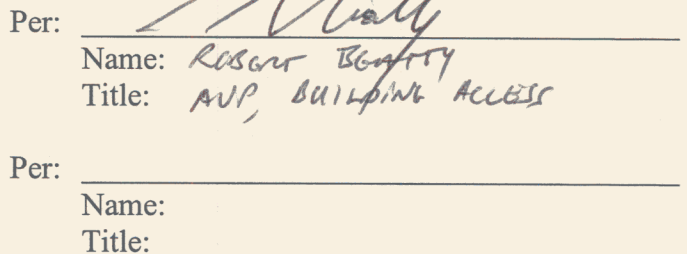 Per:
Name: ROBERT BEATTY
Title: AVP, BUILDING ACCESS
Per:
Name:
Title: